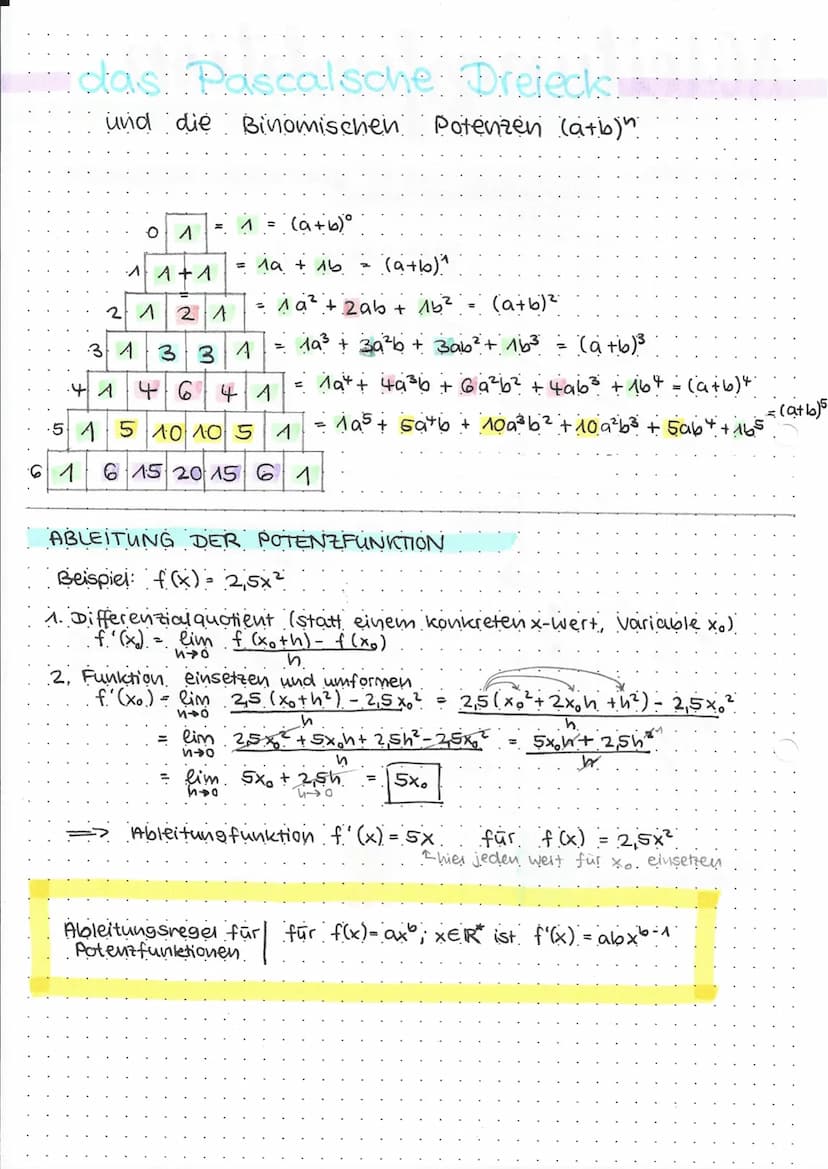 das Pascalsche Dreieck
und die Binomischen Potenzen (a+b)ⁿ
0 1 = 1 = (a+b)⁰
1 1 + 1 = 1a + 1b = (a+b)¹
2 1 2 1 = 1a² + 2ab + 1b² = (a+b)²
3 1 3 3 1 = 1a³ + 3a²b + 3ab² + 1b³ = (a+b)³
4 1 4 6 4 1 = 1a⁴ + 4a³b + 6a²b² + 4ab³ + 1b⁴ = (a+b)⁴
5 1 5 10 10 5 1 = 1a⁵ + 5a⁴b + 10a³b² + 10a²b³ + 5ab⁴ + 1b⁵ = (a+b)⁵
6 1 6 15 20 15 6 1
ABLEITUNG DER POTENZFUNKTION
Beispiel: f(x) = 2,5x²
1. Differenzialquotient (statt einem konkreten x-Wert, Variable x₀)
f'(x₀) = lim h→0 f(x₀+h) - f(x₀) / h
2. Funktion einsetzen und umformen
f'(x₀) = lim h→0 2,5(x₀+h²) - 2,5x₀² / h = 2,5(x₀² + 2x₀h + h²) - 2,5x₀² / h
= lim h→0 2,5x₀² + 5x₀h + 2,5h² - 2,5x₀² / h = 5x₀h + 2,5h² / h
= lim h→0 5x₀ + 2,5h = 5x₀
h→0
=> Ableitungfunktion f'(x) = 5x für f(x) = 2,5x²
hier jeden wert für x₀ einsetzen
Ableitungsregel für | für f(x) = axᵇ; x∈ℝ* ist f'(x) = abxᵇ⁻¹
Potenzfunktionen